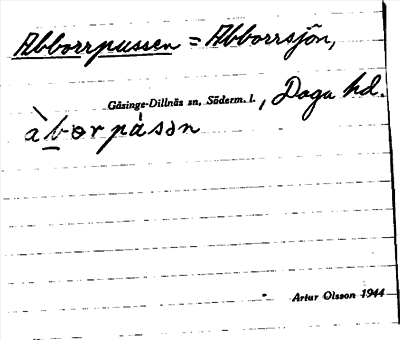 Abborrpussen = Abborrsjön,
Gåsinge-Dillnäs sn, Söderm. l., Daga hd.
àborpásən
Artur Olsson 1944